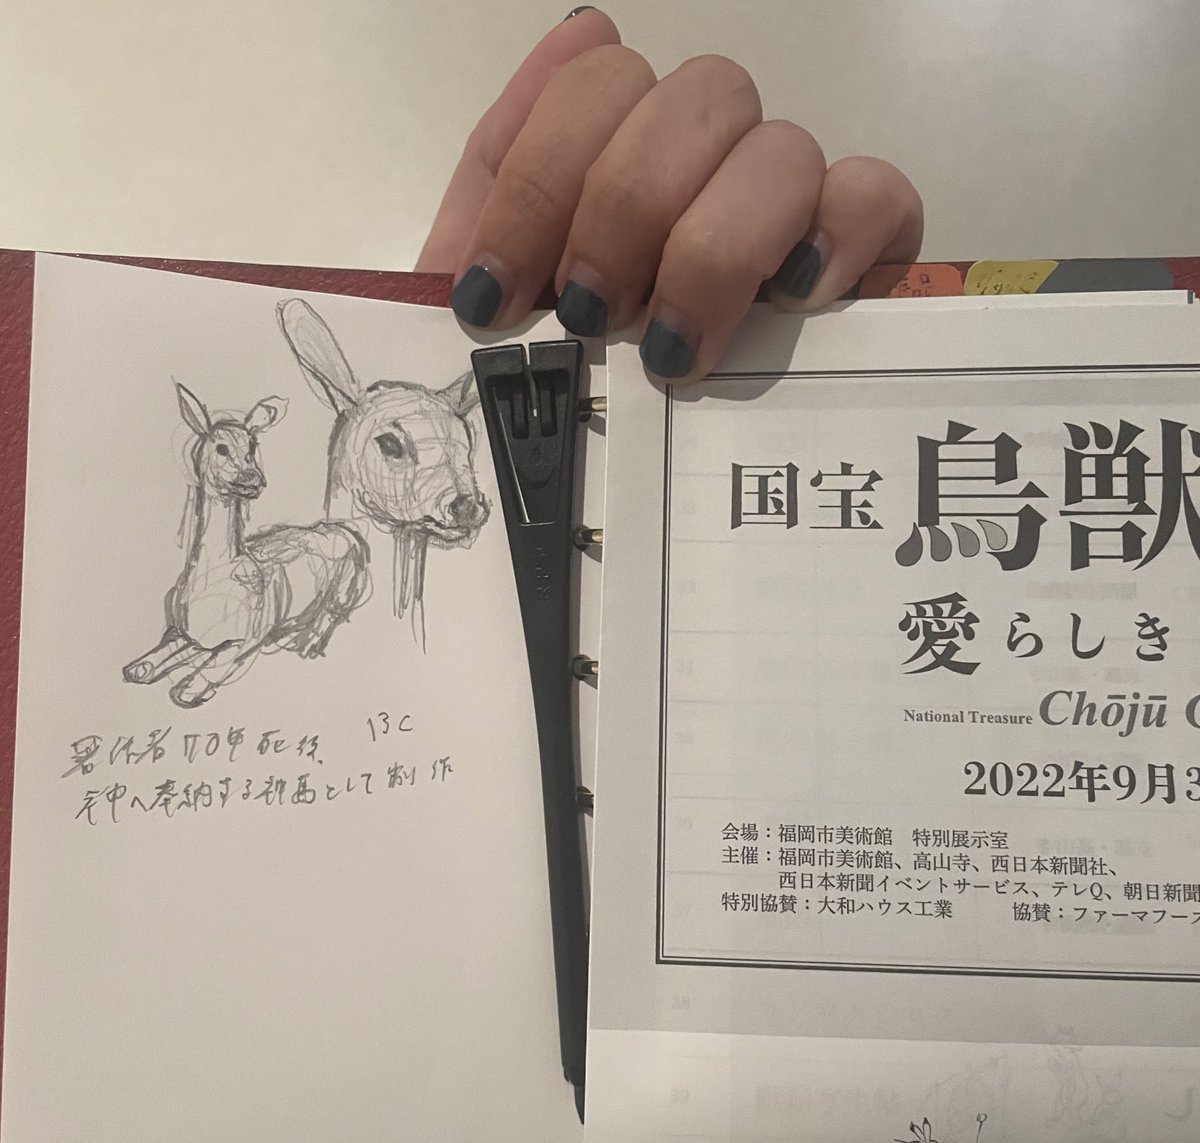 13C
著作者70年死後
神へ奉納する許馬として制作
国宝 鳥獣
愛らしき
National Treasure Chōjū
2022年9月3
会場：福岡市美術館　特別展示室
主催：福岡市美術館、高山寺、西日本新聞社、
西日本新聞イベントサービス、テレQ、朝日新聞
特別協賛：大和ハウス工業　協賛：ファーマフーズ